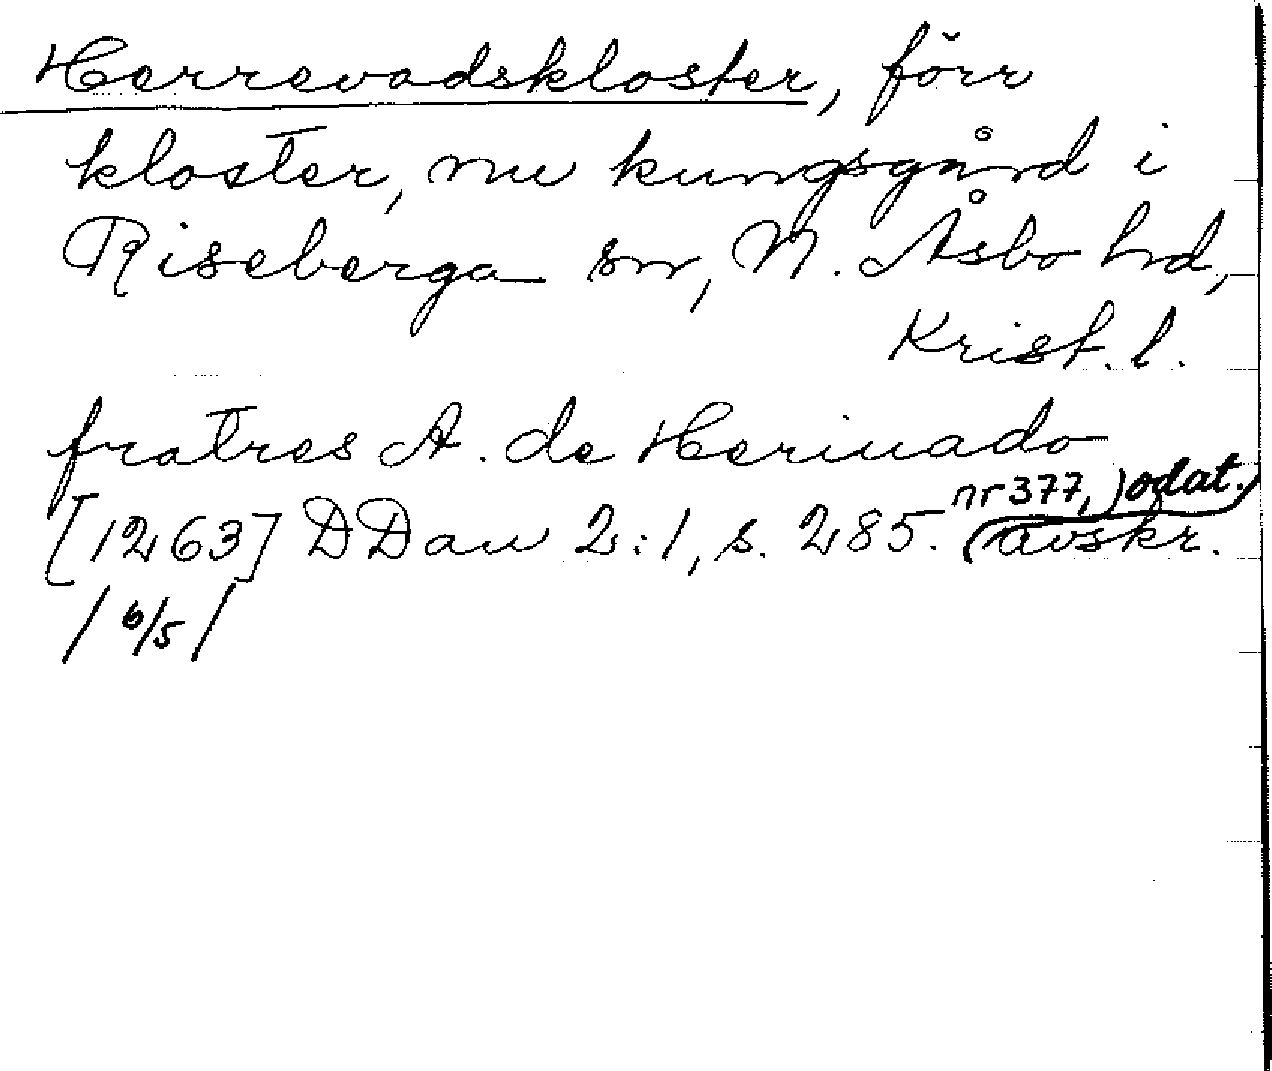 Herrevadskloster, förr
kloster, nu kungsgård i
Riseberga sn, N. Åsbo hd,
Krist. l.
fratres A. de Heriuado
[1263] DDan 2:1, s. 285. nr 377, odat. avskr.
/6/5/